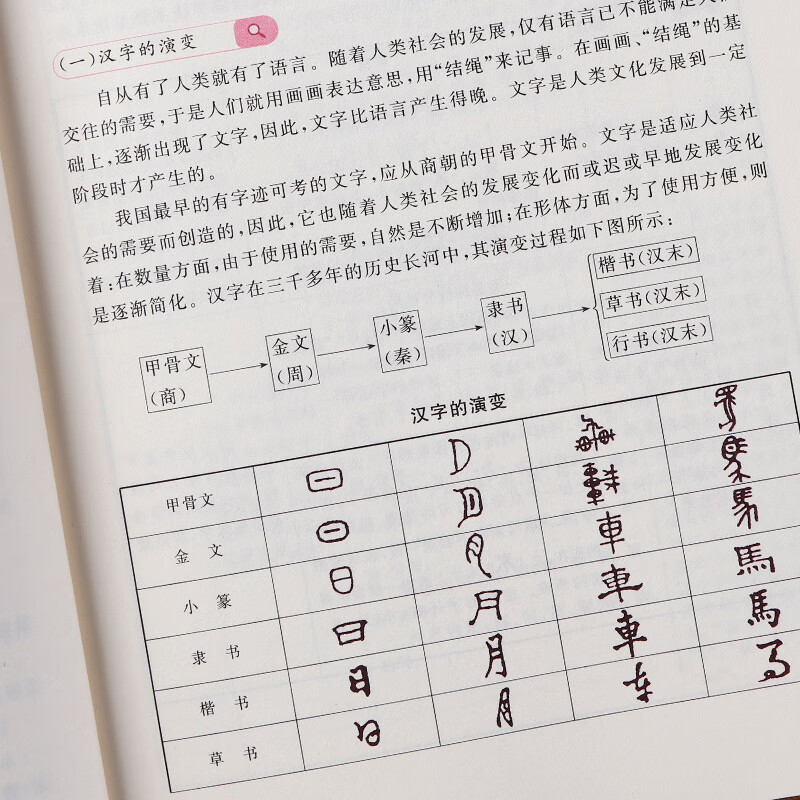 (一)汉字的演变
自从有了人类就有了语言。随着人类社会的发展,仅有语言已不能满足人们
交往的需要,于是人们就用画画表达意思,用“结绳”来记事。在画画、“结绳”的基
础上,逐渐出现了文字,因此,文字比语言产生得晚。文字是人类文化发展到一定
阶段时才产生的。
我国最早的有字迹可考的文字,应从商朝的甲骨文开始。文字是适应人类社
会的需要而创造的,因此,它也随着人类社会的发展变化而或迟或早地发展变化
着:在数量方面,由于使用的需要,自然是不断增加;在形体方面,为了使用方便,则
是逐渐简化。汉字在三千多年的历史长河中,其演变过程如下图所示:
甲骨文
(商)
金文
(周)
小篆
(秦)
隶书
(汉)
楷书(汉末)
草书(汉末)
行书(汉末)
汉字的演变
甲骨文 日 月 車 馬
金 文 日 月 車 馬
小 篆 日 月 車 馬
隶 书 日 月 車 馬
楷 书 日 月 車 馬
草 书 日 月 车 马